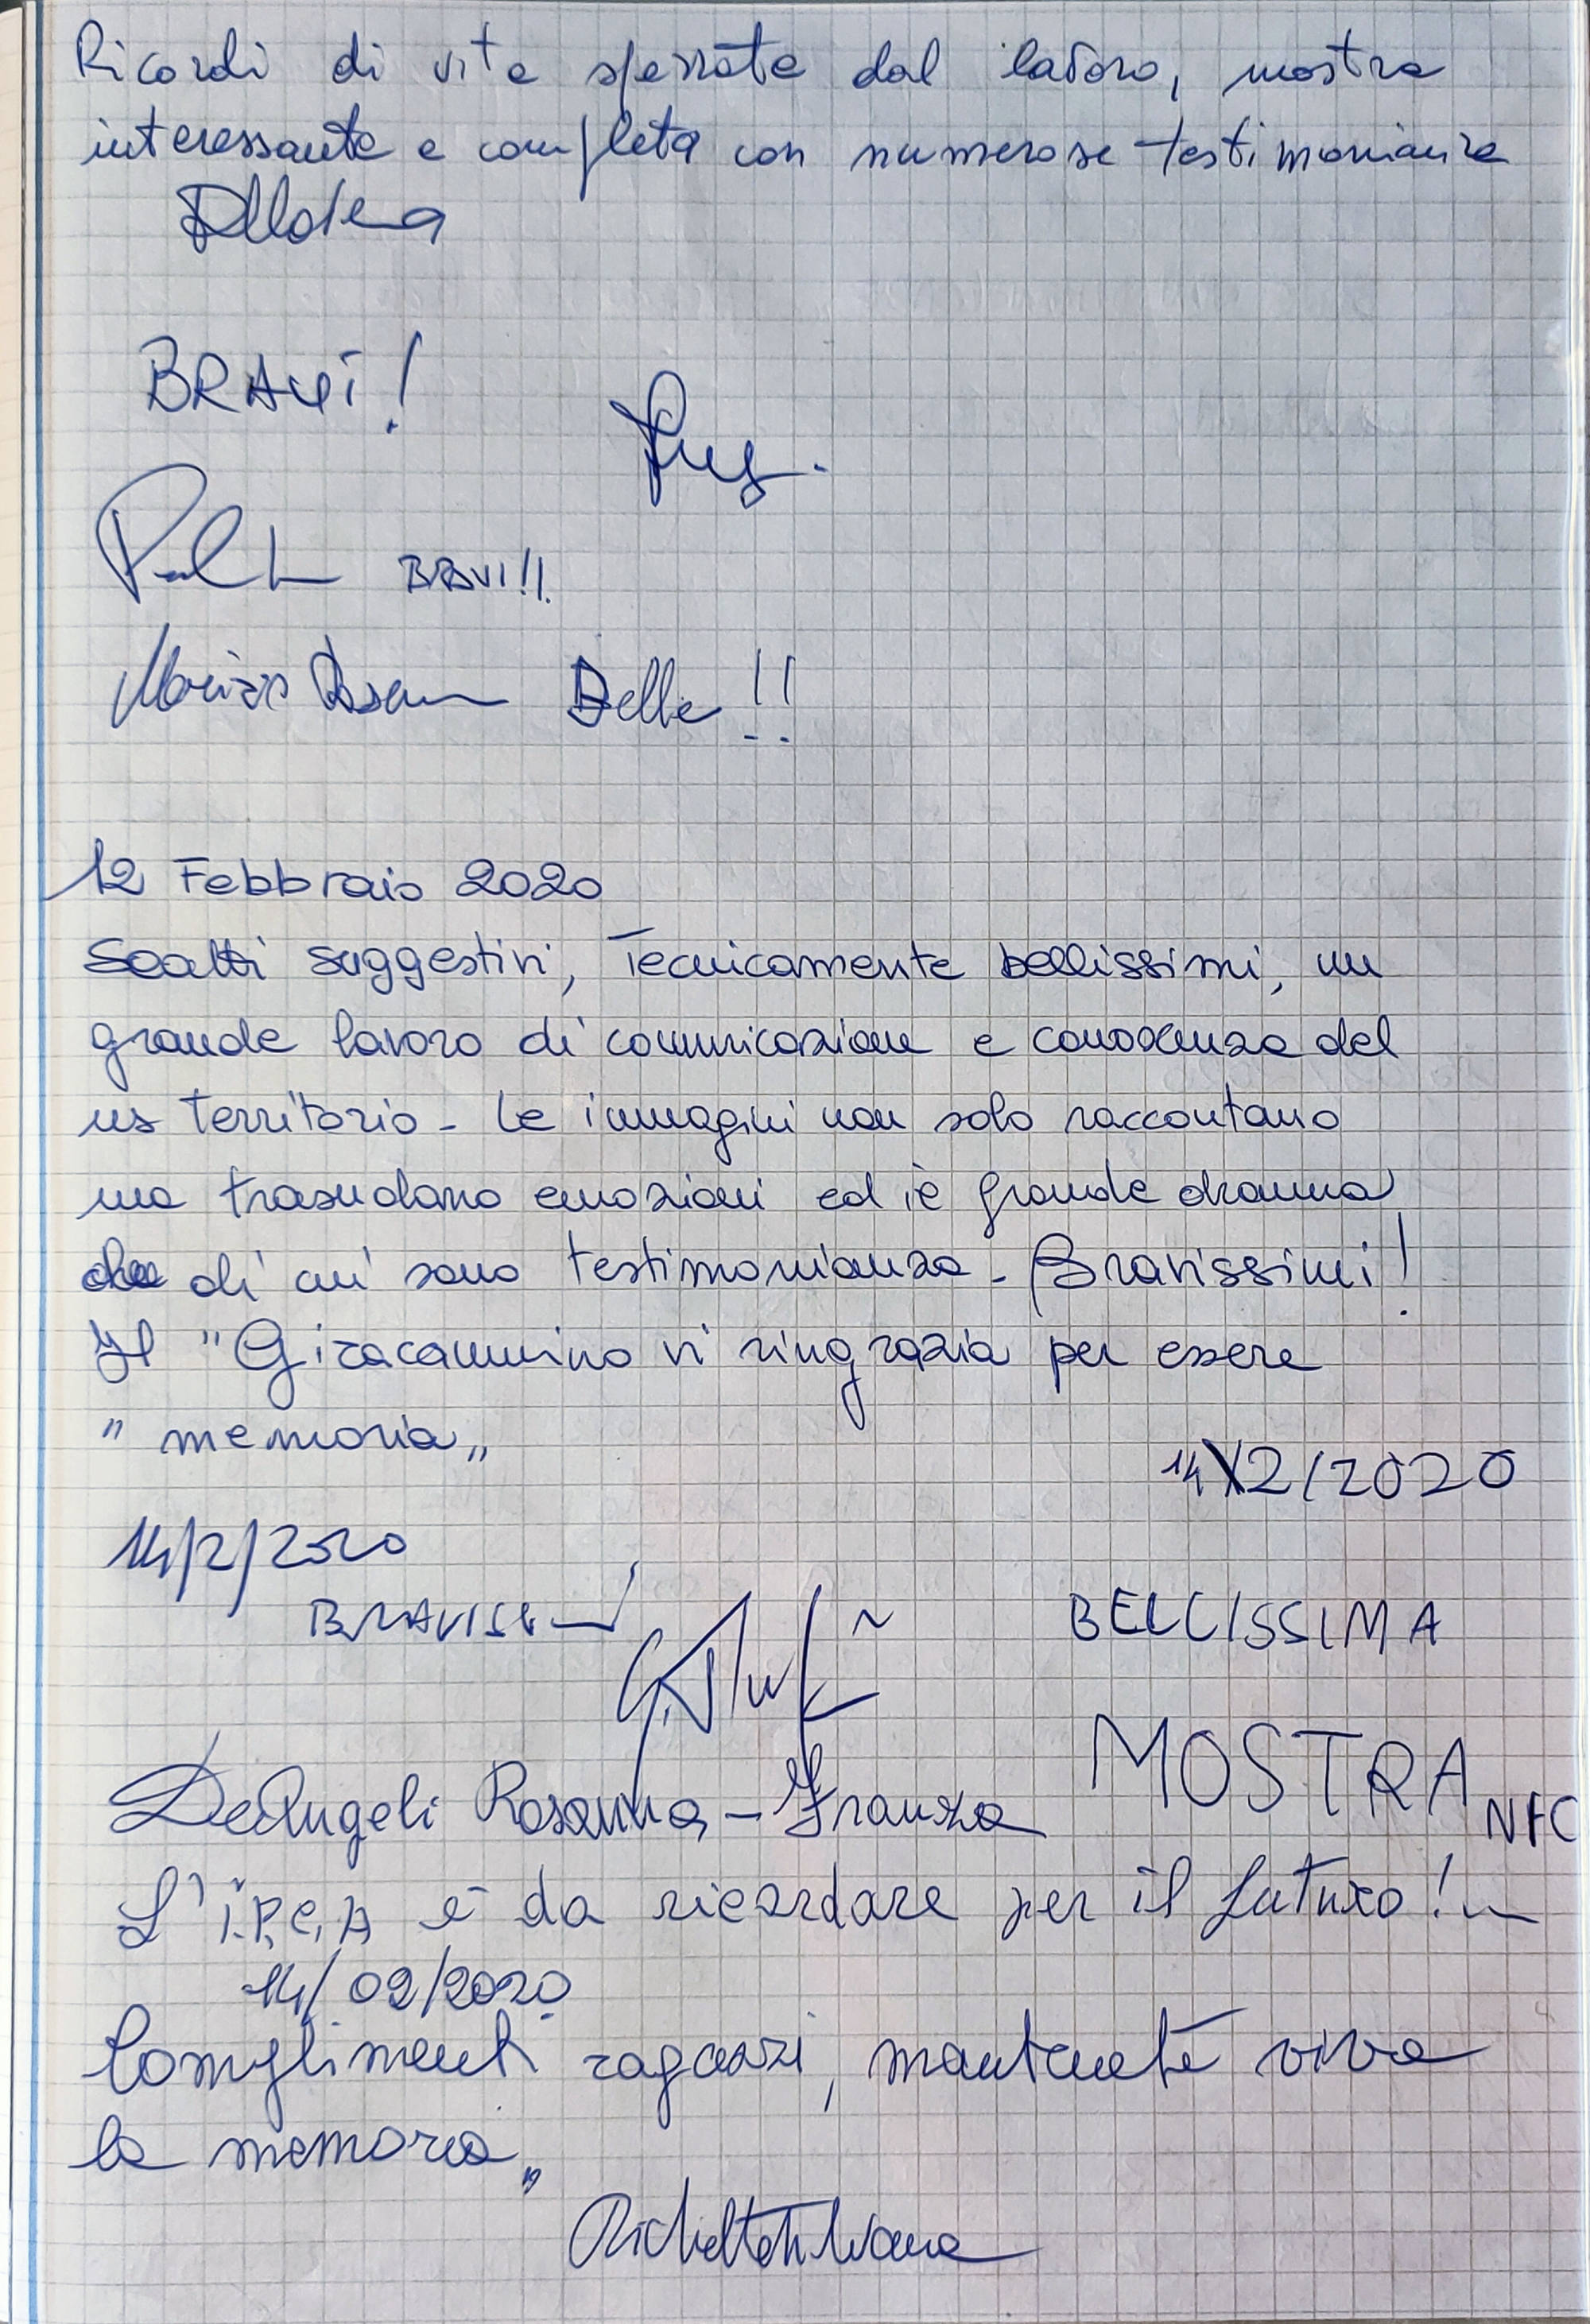 Ricordi di vite spezzate dal lavoro, mostra
interessante e completa con numerose testimonianze
BRAVI!
BRAVI!!
Belle!!
12 Febbraio 2020
Scatti suggestivi, Tecnicamente bellissimi, un
grande lavoro di comunicazione e conoscenza del
ns territorio - Le immagini non solo raccontano
ma trasudano emozioni ed il grande dramma
di cui sono testimonianza - Bravissimi!
Il "Giracammino vi ringrazia per essere
"memoria"
14/2/2020
14/2/2020
BRAVISSIMI
BELLISSIMA
MOSTRA
NFC
DeAngeli Rosanna - Franza
L'I.P.C.A è da ricordare per il futuro!
14/02/2020
Complimenti ragazzi, mantenete viva
la memoria"